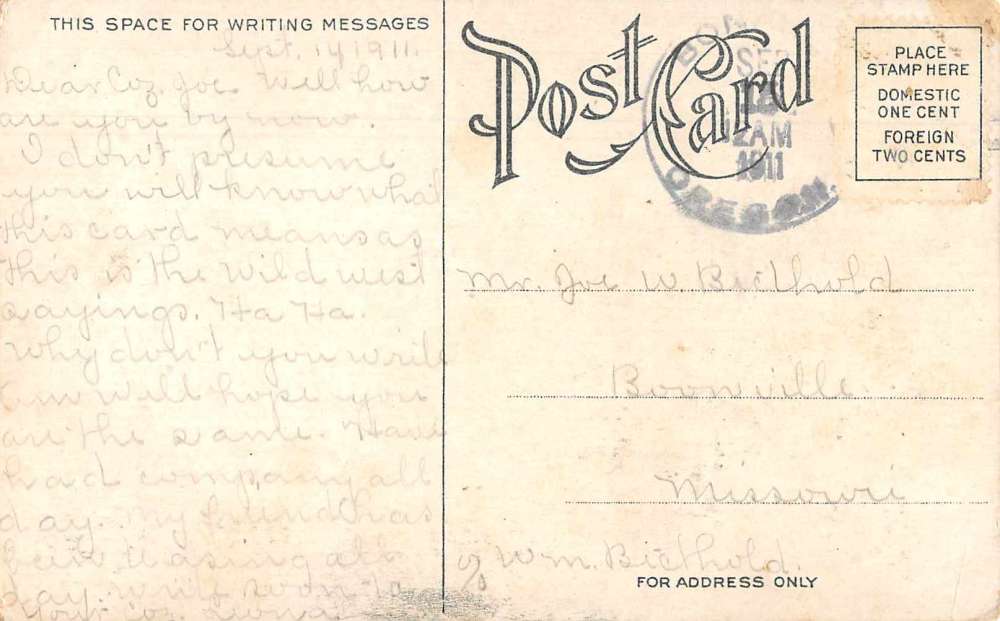 THIS SPACE FOR WRITING MESSAGES
Sept. 14 1911.
Dear Coz Joe. Well how
are you by now.
I don't presume
you will know what
this card means as
this is the wild west
sayings. Ha Ha.
Why don't you write
am well hope you
are the same. Have
had company all
day. My friend has
been teasing all
day. write soon to
Your Coz.
Post Card
SEP
12AM
1911
OREGON.
PLACE
STAMP HERE
DOMESTIC
ONE CENT
FOREIGN
TWO CENTS
Mr. Joe W. Biethold
Boonville
Missouri
c/o Wm. Biethold.
FOR ADDRESS ONLY